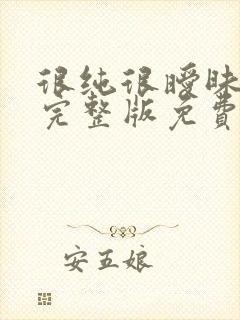 很纯很暧昧
完整版免費
安五娘